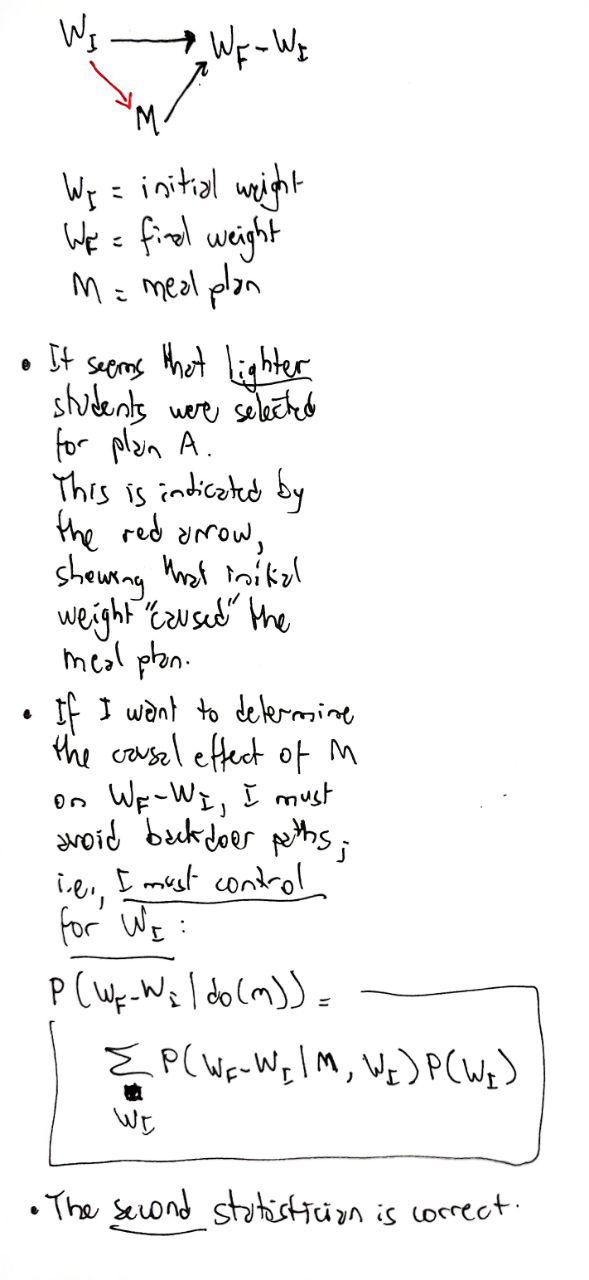 W_I → W_F - W_I
M
W_I = initial weight
W_F = final weight
M = meal plan
• It seems that lighter
students were selected
for plan A.
This is indicated by
the red arrow,
showing that initial
weight "caused" the
meal plan.
• If I want to determine
the causal effect of M
on W_F-W_I, I must
avoid backdoor paths;
i.e., I must control
for W_I:
P(W_F-W_I | do(m)) =
∑ P(W_F-W_I | M, W_I) P(W_I)
W_I
• The second statistician is correct.